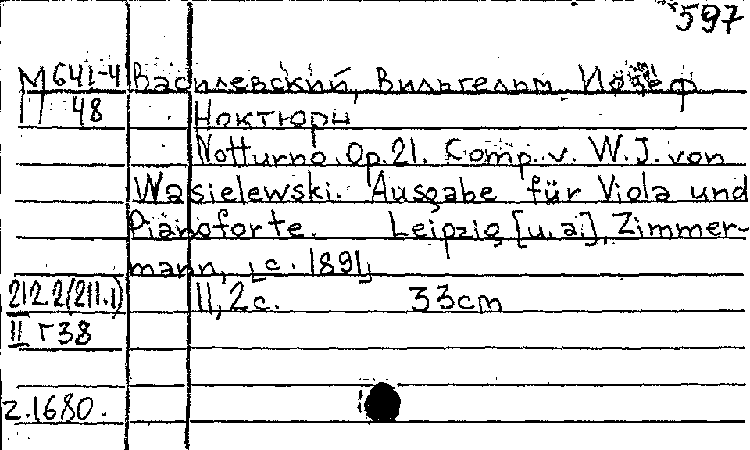 597
М 641-4 Василевский, Вильгельм Иозеф
48 Ноктюрн
Notturno. Op. 21. Comp. v. W. J. von
Wasielewski. Ausgabe für Viola und
Pianoforte. Leipzig [u. a.], Zimmer-
mann, [c. 1891]
212.2(211.1) 11, 2 с. 33 cm
II Г 38
2.1680.